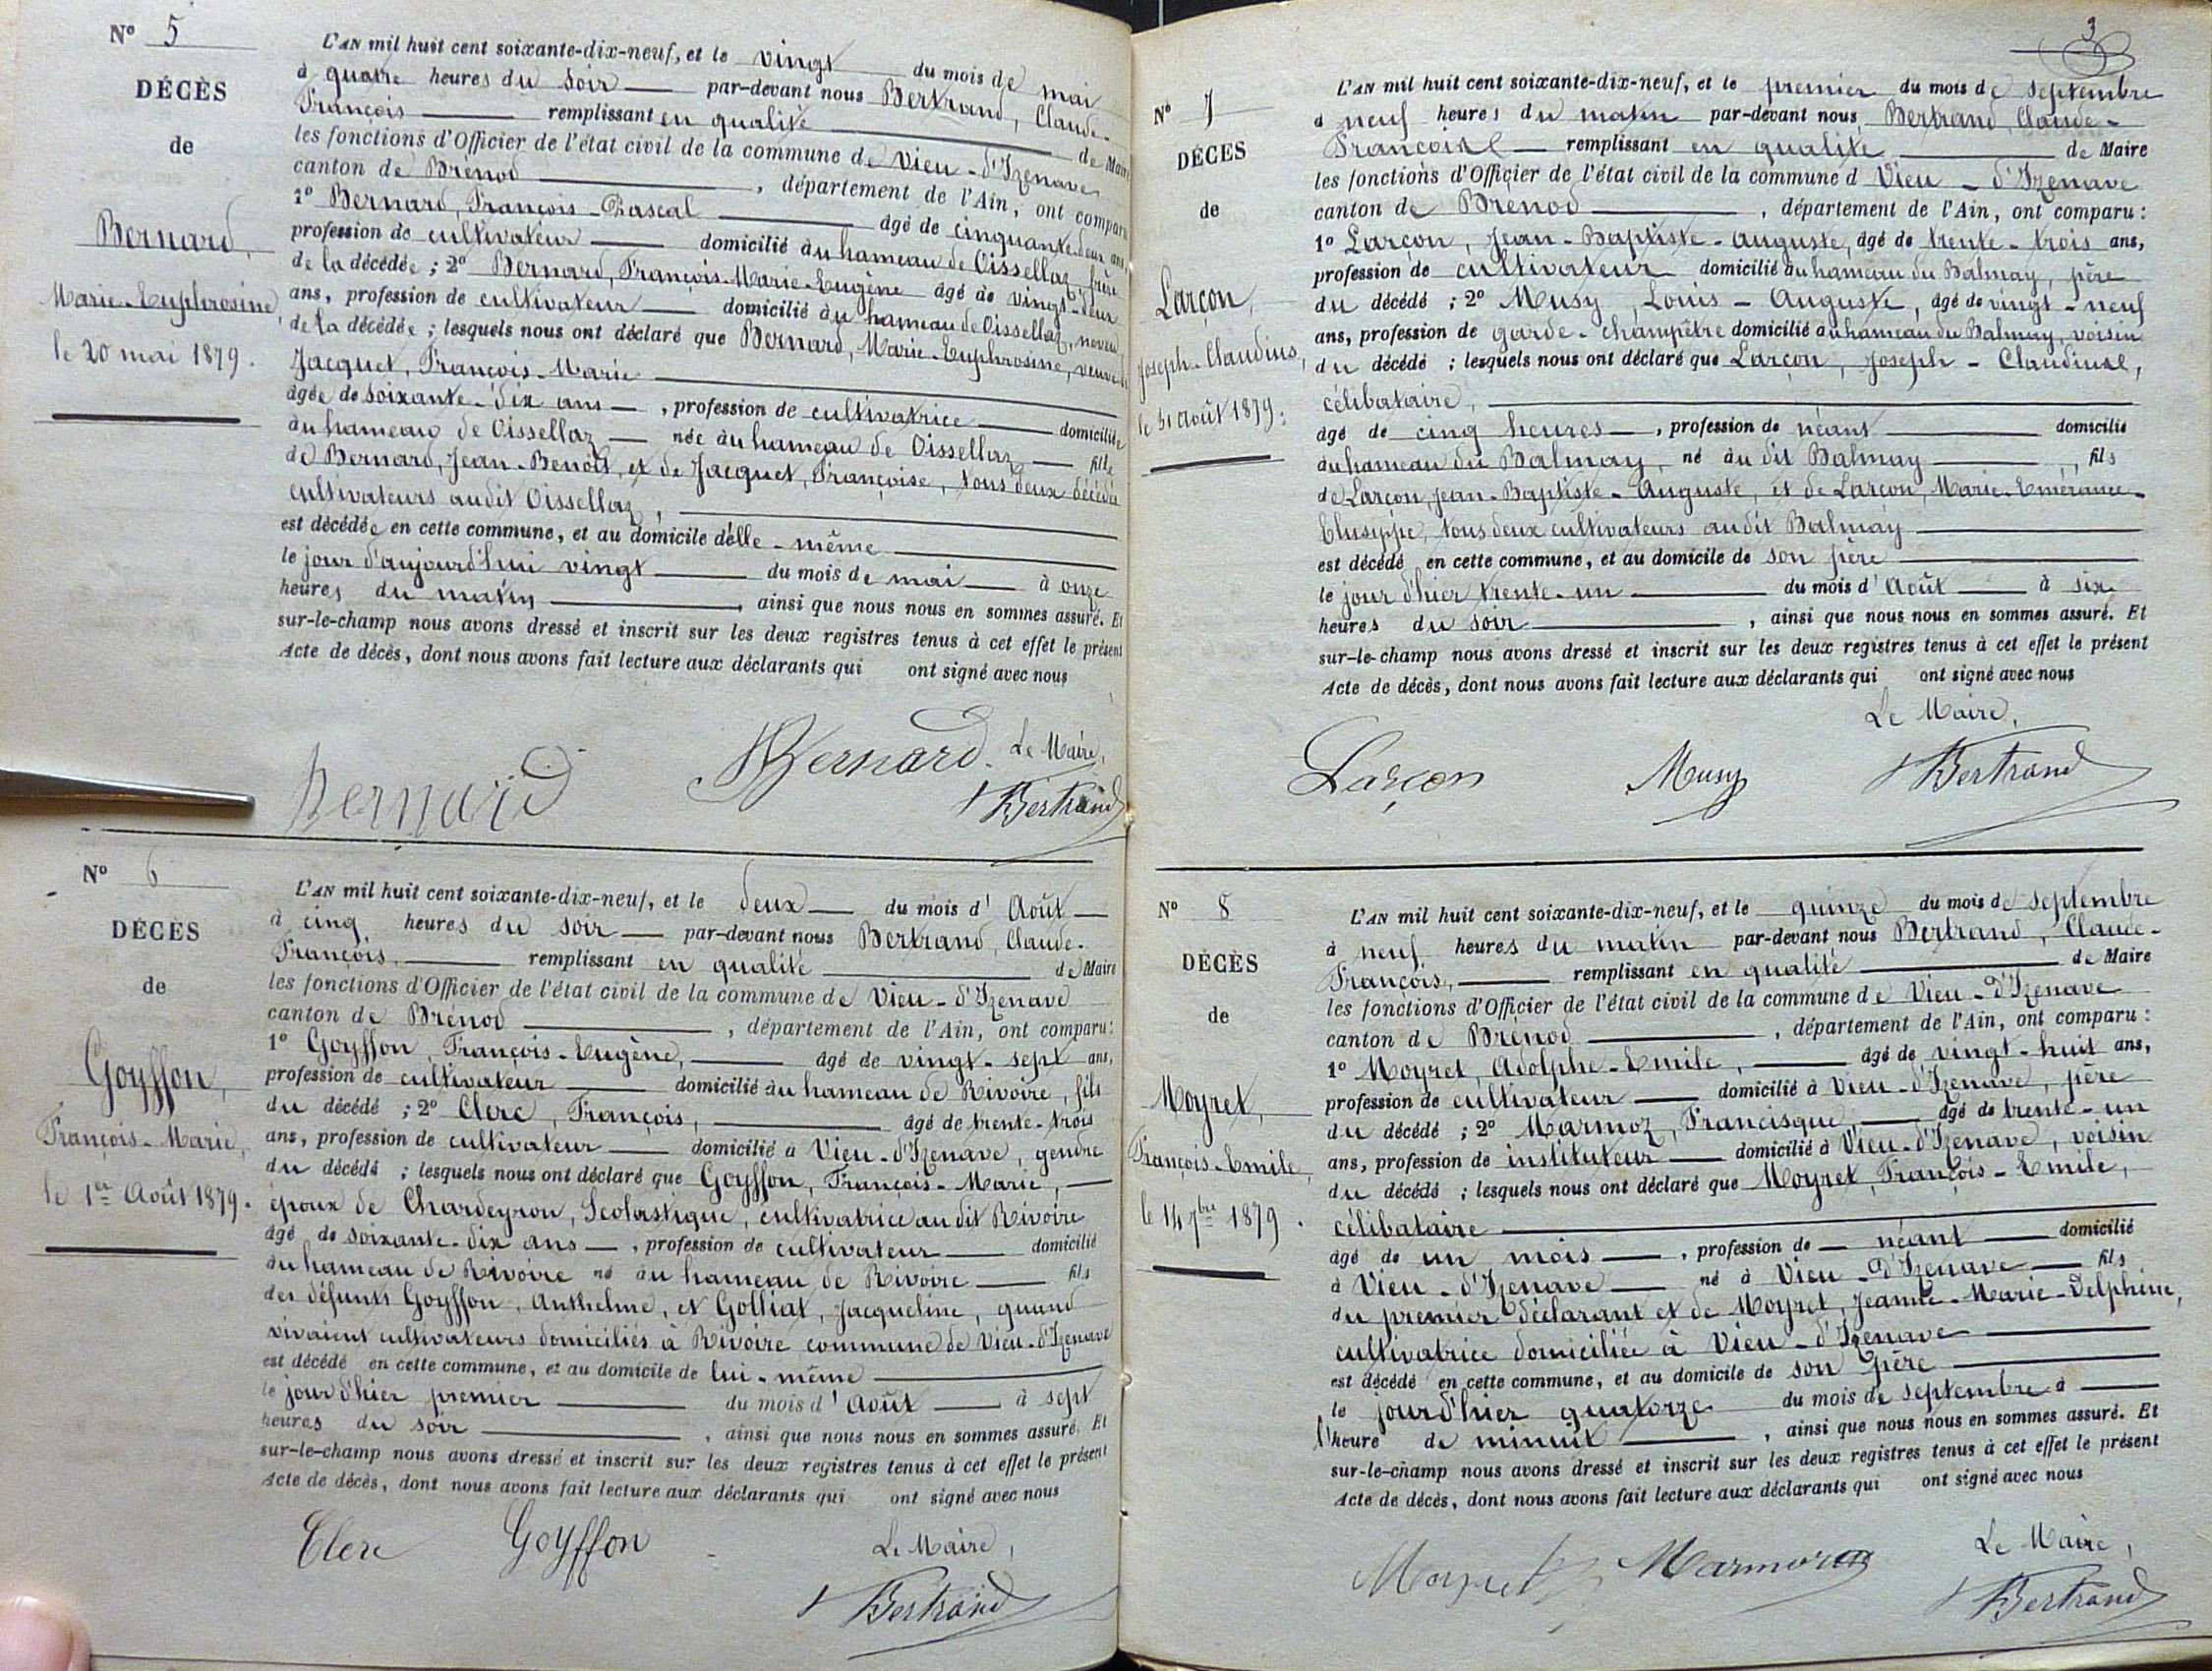 Nº 5
DÉCÈS
de
Bernard,
Marie-Euphrosine,
le 20 mai 1879.
L'AN mil huit cent soixante-dix-neuf, et le vingt du mois de mai
à quatre heures du soir par-devant nous Bertrand, Claude-
François remplissant en qualité de Maire
les fonctions d'Officier de l'état civil de la commune de Vieu-d'Izenave
canton de Brénod, département de l'Ain, ont comparu
1º Bernard, François-Pascal âgé de cinquante-deux ans
profession de cultivateur domicilié au hameau de Oissellaz, frère
de la décédée ; 2º Bernard, François-Marie-Eugène âgé de vingt-deux
ans, profession de cultivateur domicilié au hameau de Oissellaz, neveu
de la décédée ; lesquels nous ont déclaré que Bernard, Marie-Euphrosine, veuve de
Jacquet, François-Marie
âgée de soixante-dix ans, profession de cultivatrice domiciliée
au hameau de Oissellaz née au hameau de Oissellaz fille
de Bernard, Jean-Benoit, et de Jacquet, Françoise, tous deux décédés
cultivateurs audit Oissellaz,
est décédée en cette commune, et au domicile d'elle-même
le jour d'aujourd'hui vingt du mois de mai à onze
heures du matin, ainsi que nous nous en sommes assuré. Et
sur-le-champ nous avons dressé et inscrit sur les deux registres tenus à cet effet le présent
Acte de décès, dont nous avons fait lecture aux déclarants qui ont signé avec nous
Le Maire,
Bernard Bernard Bertrand
Nº 6
DÉCÈS
de
Goyffon,
François-Marie,
le 1er Août 1879.
L'AN mil huit cent soixante-dix-neuf, et le deux du mois d'Août
à cinq heures du soir par-devant nous Bertrand, Claude-
François, remplissant en qualité de Maire
les fonctions d'Officier de l'état civil de la commune de Vieu-d'Izenave
canton de Brénod, département de l'Ain, ont comparu :
1º Goyffon, François-Eugène, âgé de vingt-sept ans,
profession de cultivateur domicilié au hameau de Rivoire, fils
du décédé ; 2º Clerc, François, âgé de trente-trois
ans, profession de cultivateur domicilié à Vieu-d'Izenave, gendre
du décédé ; lesquels nous ont déclaré que Goyffon, François-Marie,
époux de Chardeyron, Scolastique, cultivatrice au dit Rivoire
âgé de soixante-dix ans, profession de cultivateur domicilié
au hameau de Rivoire né au hameau de Rivoire fils
des défunts Goyffon, Anthelme, et Golliat, Jacqueline, quand
vivaient cultivateurs domiciliés à Rivoire commune de Vieu-d'Izenave
est décédé en cette commune, et au domicile de lui-même
le jour d'hier premier du mois d'Août à sept
heures du soir, ainsi que nous nous en sommes assuré. Et
sur-le-champ nous avons dressé et inscrit sur les deux registres tenus à cet effet le présent
Acte de décès, dont nous avons fait lecture aux déclarants qui ont signé avec nous
Clerc Goyffon Le Maire,
Bertrand
3
Nº 7
DÉCÈS
de
Larçon,
Joseph-Claudius,
le 31 Août 1879.
L'AN mil huit cent soixante-dix-neuf, et le premier du mois de septembre
à neuf heures du matin par-devant nous Bertrand, Claude-
François remplissant en qualité de Maire
les fonctions d'Officier de l'état civil de la commune d Vieu-d'Izenave
canton de Brénod, département de l'Ain, ont comparu :
1º Larçon, Jean-Baptiste-Auguste, âgé de trente-trois ans,
profession de cultivateur domicilié au hameau du Balmay, père
du décédé ; 2º Musy, Louis-Auguste, âgé de vingt-neuf
ans, profession de garde-champêtre domicilié au hameau du Balmay, voisin
du décédé ; lesquels nous ont déclaré que Larçon, Joseph-Claudius,
célibataire,
âgé de cinq heures, profession de néant domicilié
au hameau du Balmay, né au dit Balmay, fils
de Larçon, Jean-Baptiste-Auguste, et de Larçon, Marie-Emérance-
Eluseppe, tous deux cultivateurs audit Balmay
est décédé en cette commune, et au domicile de son père
le jour d'hier trente-un du mois d'Août à six
heures du soir, ainsi que nous nous en sommes assuré. Et
sur-le-champ nous avons dressé et inscrit sur les deux registres tenus à cet effet le présent
Acte de décès, dont nous avons fait lecture aux déclarants qui ont signé avec nous
Le Maire,
Larçon Musy Bertrand
Nº 8
DÉCÈS
de
Moyret,
François-Emile,
le 14 7bre 1879.
L'AN mil huit cent soixante-dix-neuf, et le quinze du mois de septembre
à neuf heures du matin par-devant nous Bertrand, Claude-
François, remplissant en qualité de Maire
les fonctions d'Officier de l'état civil de la commune de Vieu-d'Izenave
canton de Brénod, département de l'Ain, ont comparu :
1º Moyret, Adolphe-Emile, âgé de vingt-huit ans,
profession de cultivateur domicilié à Vieu-d'Izenave, père
du décédé ; 2º Marmoz, Francisque, âgé de trente-un
ans, profession de instituteur domicilié à Vieu-d'Izenave, voisin
du décédé ; lesquels nous ont déclaré que Moyret, François-Emile,
célibataire
âgé de un mois, profession de néant domicilié
à Vieu-d'Izenave né à Vieu-d'Izenave fils
du premier déclarant et de Moyret, Jeanne-Marie-Delphine,
cultivatrice domiciliée à Vieu-d'Izenave
est décédé en cette commune, et au domicile de son père
le jour d'hier quatorze du mois de septembre à
l'heure de minuit, ainsi que nous nous en sommes assuré. Et
sur-le-champ nous avons dressé et inscrit sur les deux registres tenus à cet effet le présent
Acte de décès, dont nous avons fait lecture aux déclarants qui ont signé avec nous
Le Maire,
Moyret Marmoz Bertrand